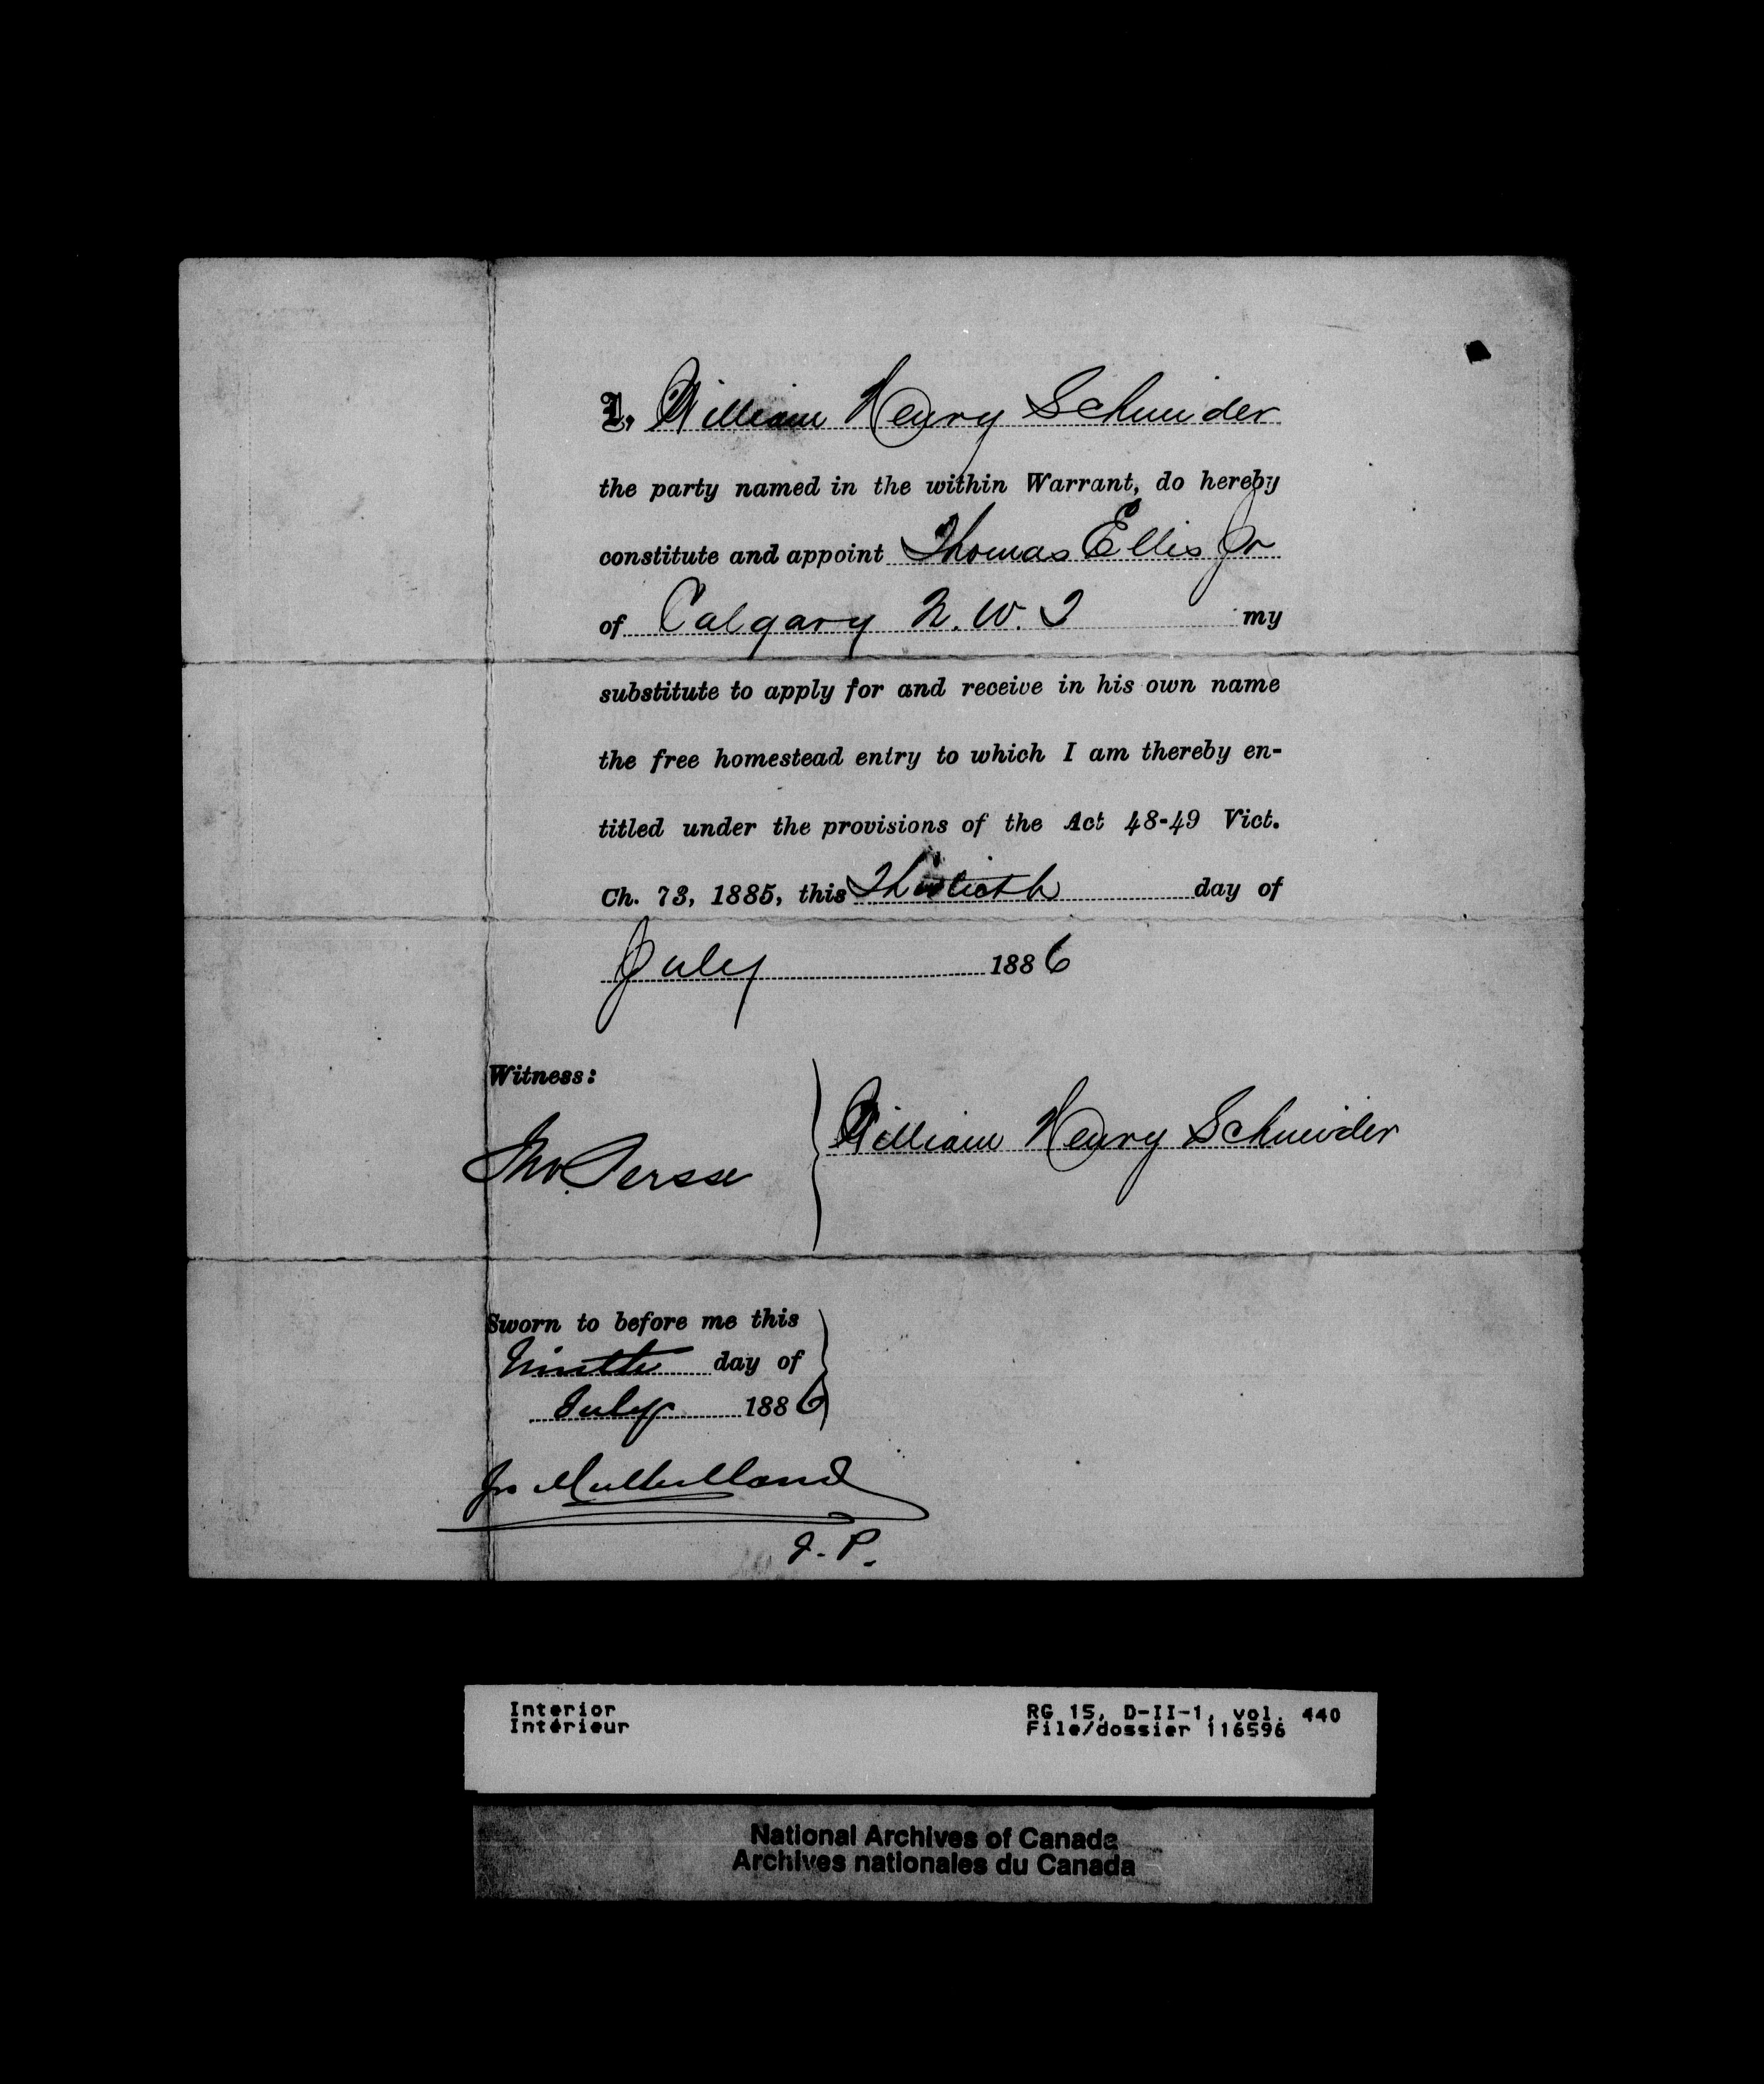 I, William Henry Schneider
the party named in the within Warrant, do hereby
constitute and appoint Thomas Ellis Jr
of Calgary N.W.T my
substitute to apply for and receive in his own name
the free homestead entry to which I am thereby en-
titled under the provisions of the Act 48-49 Vict.
Ch. 73, 1885, this day of
July 1886
Witness:
Jno. Persse
William Henry Schneider
Sworn to before me this
Ninth day of
July 1886
Jno Mulholland
J. P.
Interior
Intérieur
RG 15, D-II-1, vol. 440
File/dossier 116596
National Archives of Canada
Archives nationales du Canada